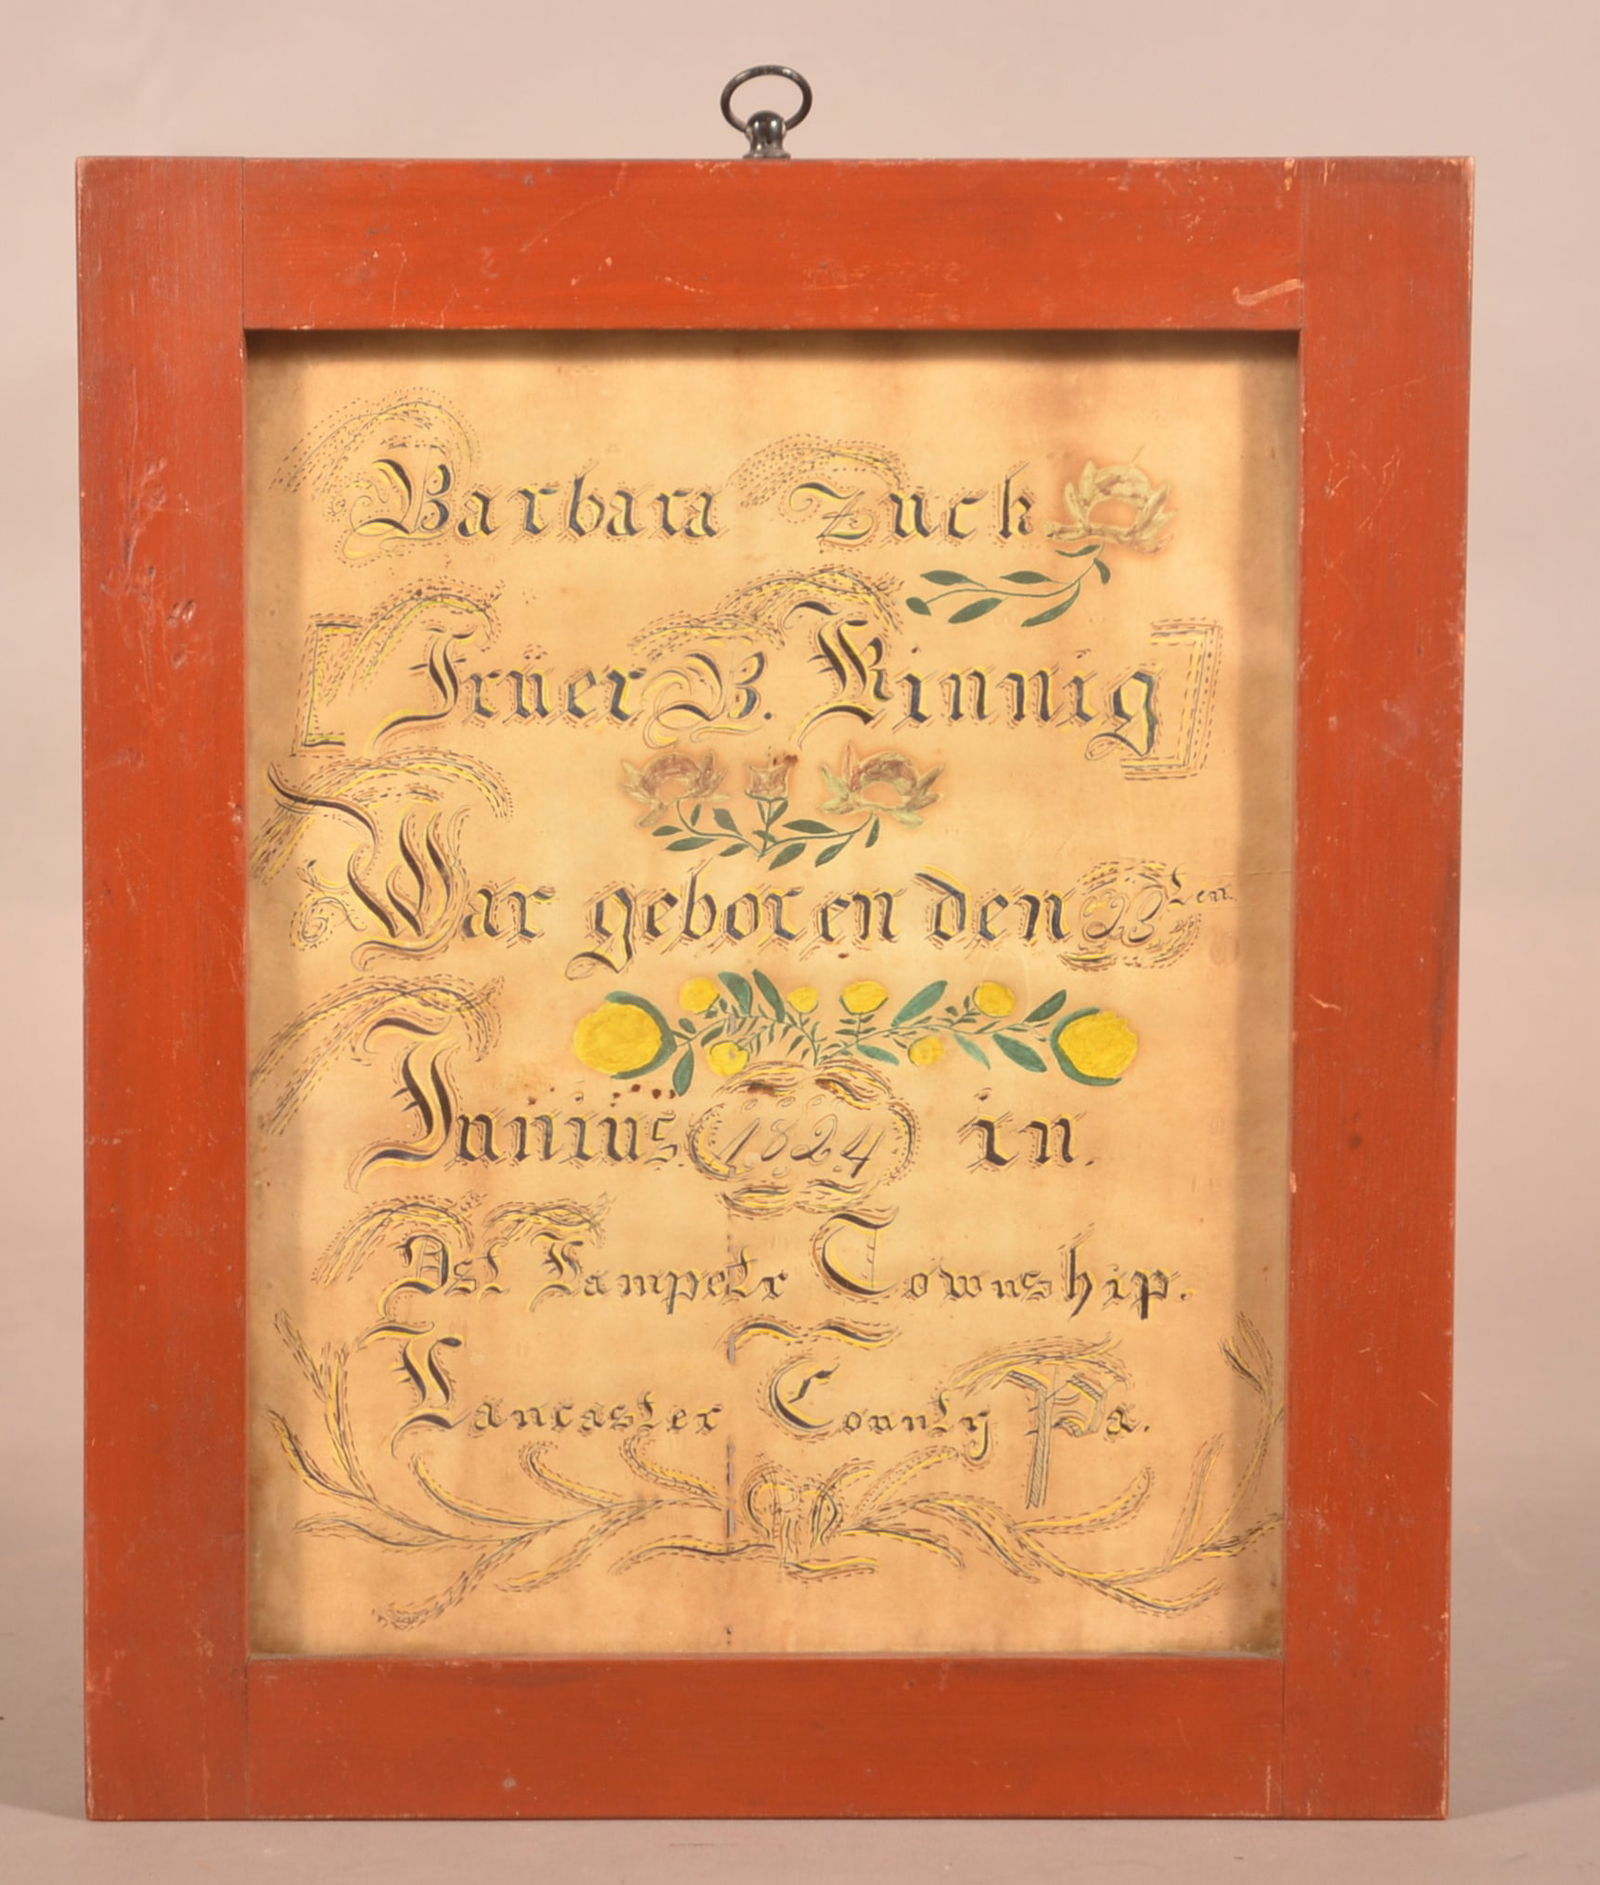 Barbara Zuck
[ Irner B. Kinnig ]
War geboren den 23ten
Junius 1824 in.
Ost Lampetr Township.
Lancaster County Pa.